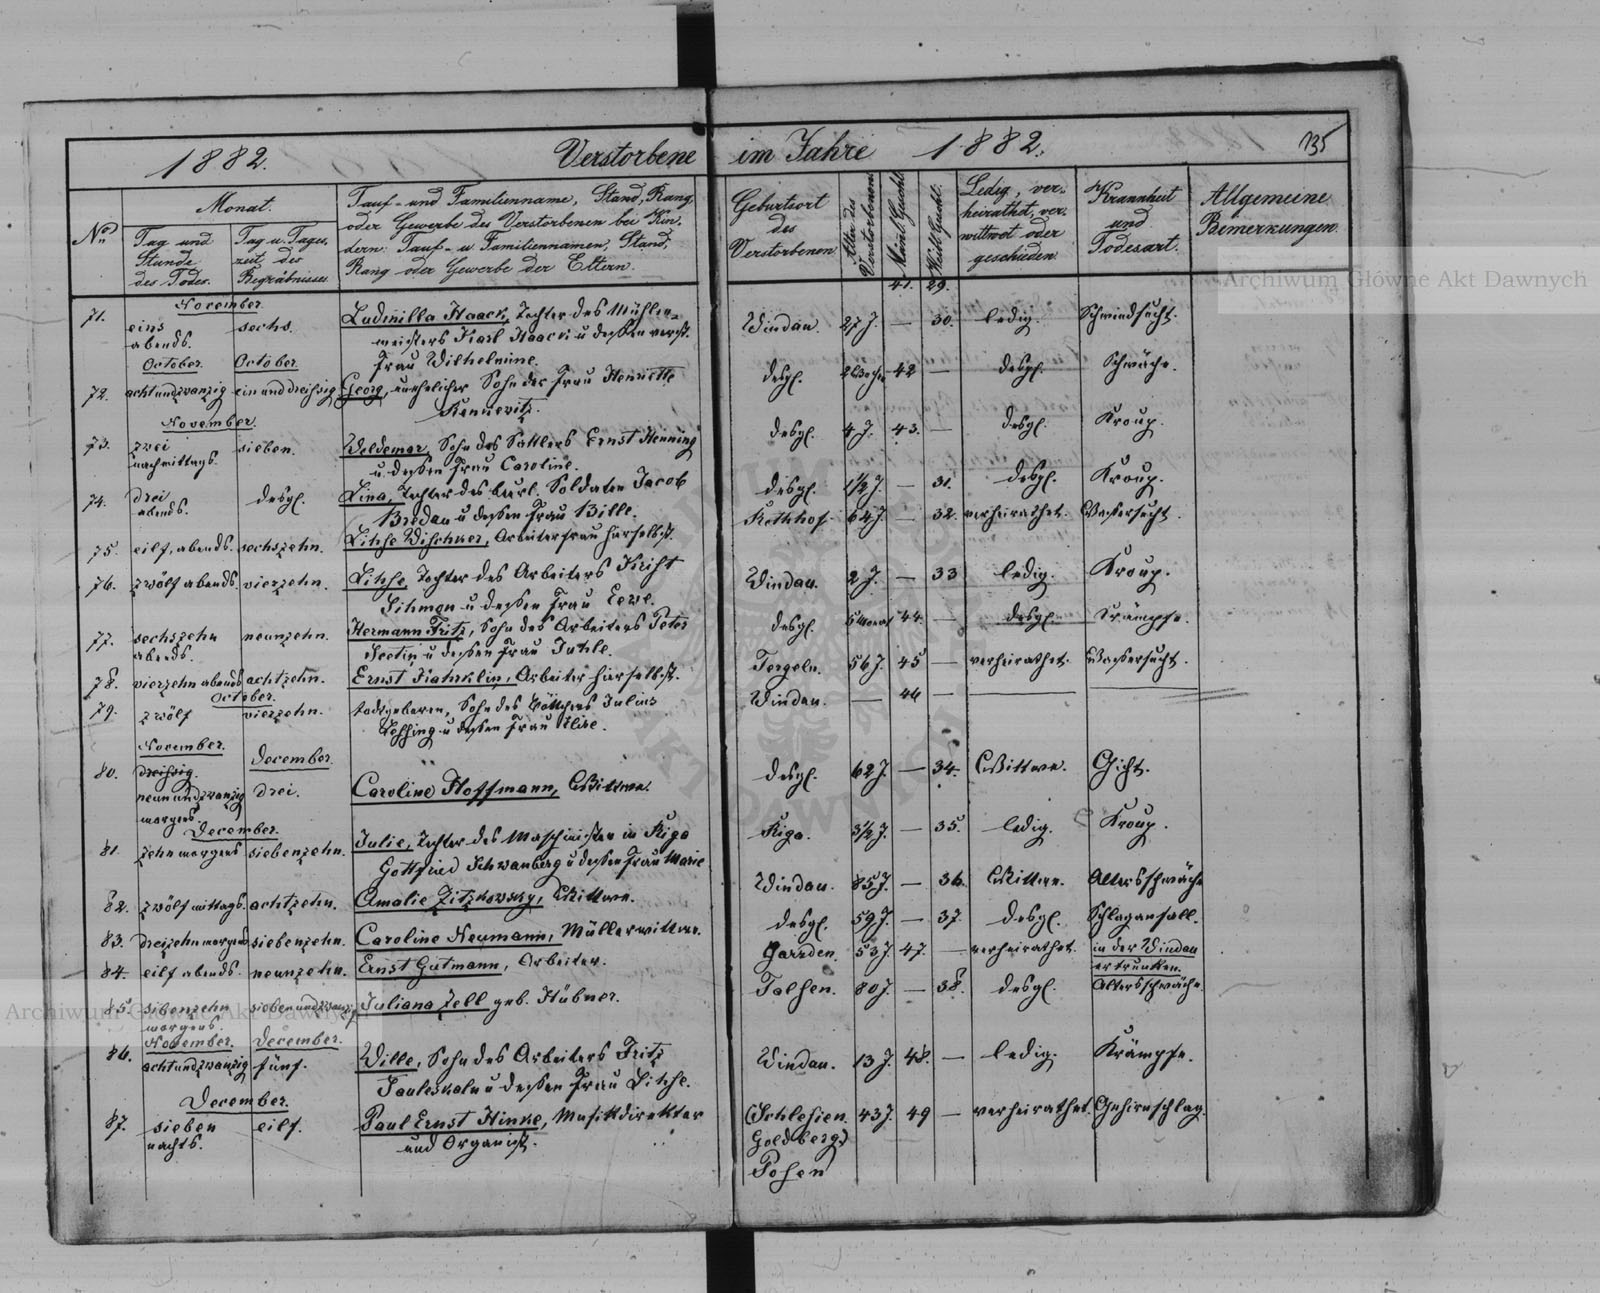 1882. Verstorbene im Jahre 1882. 135
No
Monat.
Tag und Stunde des Todes.
Tag u. Tageszeit des Begräbnisses.
Tauf- und Familienname, Stand, Rang,
oder Gewerbe des Verstorbenen bei Kin-
dern: Tauf- u Familiennamen, Stand,
Rang oder Gewerbe der Eltern.
Geburtsort des Verstorbenen
Alter des Verstorbenen
Mänl. Geschl.
Weibl. Geschl.
Ledig, ver-
heirathet, ver-
wittwet oder
geschieden
Krannheit
und
Todesart.
Allgemeine
Bemerkungen.
41. 29.
November.
71. eins abends. sechs. Ludmilla Haack, Tochter des Mühlen= Windau. 27 J. — 30. ledig. Schwindsucht.
meisters Karl Haack u dessen verst.
Frau Wilhelmine.
October. October.
72. achtundzwanzig ein und dreissig Georg, unehelicher Sohn der Frau Henriette desgl. 2 Wochen 42 — desgl. Schwäche.
November.
73. zwei nachmittags. sieben. Woldemar, Sohn des Sattlers Ernst Henning desgl. 4 J. 43. — desgl. Kroup.
u dessen Frau Caroline.
74. drei abends. desgl. Lina, Tochter des beurl. Soldaten Jacob desgl. 1½ J. — 31. desgl. Kroup.
Bredau u dessen Frau Bille.
75. eilf, abends. sechszehn. Lihse Wischner, Arbeiterfrau hierselbst. 64 J. — 32. verheirathet. Wassersucht.
76. zwölf abends. vierzehn. Lihse, Tochter des Arbeiters Krist Windau. 2 J. — 33 ledig. Kroup.
Sihman u dessen Frau Eewe.
77. sechszehn abends. neunzehn. Hermann Fritz, Sohn des Arbeiters Peter desgl. 5 Monat 44. — desgl. Krämpfe.
u dessen Frau Juhle.
78. vierzehn abends achtzehn. Ernst Kahrklin, Arbeiter hierselbst. Tergeln. 56 J. 45 — verheirathet. Wassersucht.
October.
79. zwölf vierzehn. todtgeboren, Sohn des Böttchers Julius Windau. — 46 —
u dessen Frau Alise.
November. December.
80. dreissig. neunundzwanzig morgens. drei. Caroline Hoffmann, Wittwe. desgl. 62 J. — 34. Wittwe. Gicht.
December.
81. zehn morgens siebenzehn. Julie, Tochter des Maschinisten in Riga Riga. 3½ J. — 35. ledig. Kroup.
Gottfried Schwanberg u dessen Frau Marie
82. zwölf mittags. achtzehn. Amalie Zitzkowsky, Wittwe. Windau. 85 J. — 36. Wittwe. Altersschwäche
83. dreizehn morgens siebenzehn. Caroline Neumann, Müllerwittwe. desgl. 59 J. — 37. desgl. Schlaganfall.
84. eilf abends. neunzehn. Ernst Gutmann, Arbeiter. Garrden. 53 J. 47. — verheirathet. in der Windau
ertrunken.
85. siebenzehn morgens. siebenundzwanzig Juliana Zell geb. Hübner. Talsen. 80 J. — 38. desgl. Altersschwäche.
November. December.
86. achtundzwanzig fünf. Wille, Sohn des Arbeiters Fritz Windau. 13 J. 48. — ledig. Krämpfe.
Sauleskaln u dessen Frau Lihse.
December.
87. sieben nachts. eilf. Paul Ernst Hinke, Musikdirektor (Schlesien. 43 J. 49 — verheirathet. Gehirnschlag.
und Organist. Goldberg)
Posen
Archiwum Główne Akt Dawnych
Archiwum Główne Akt Dawnych